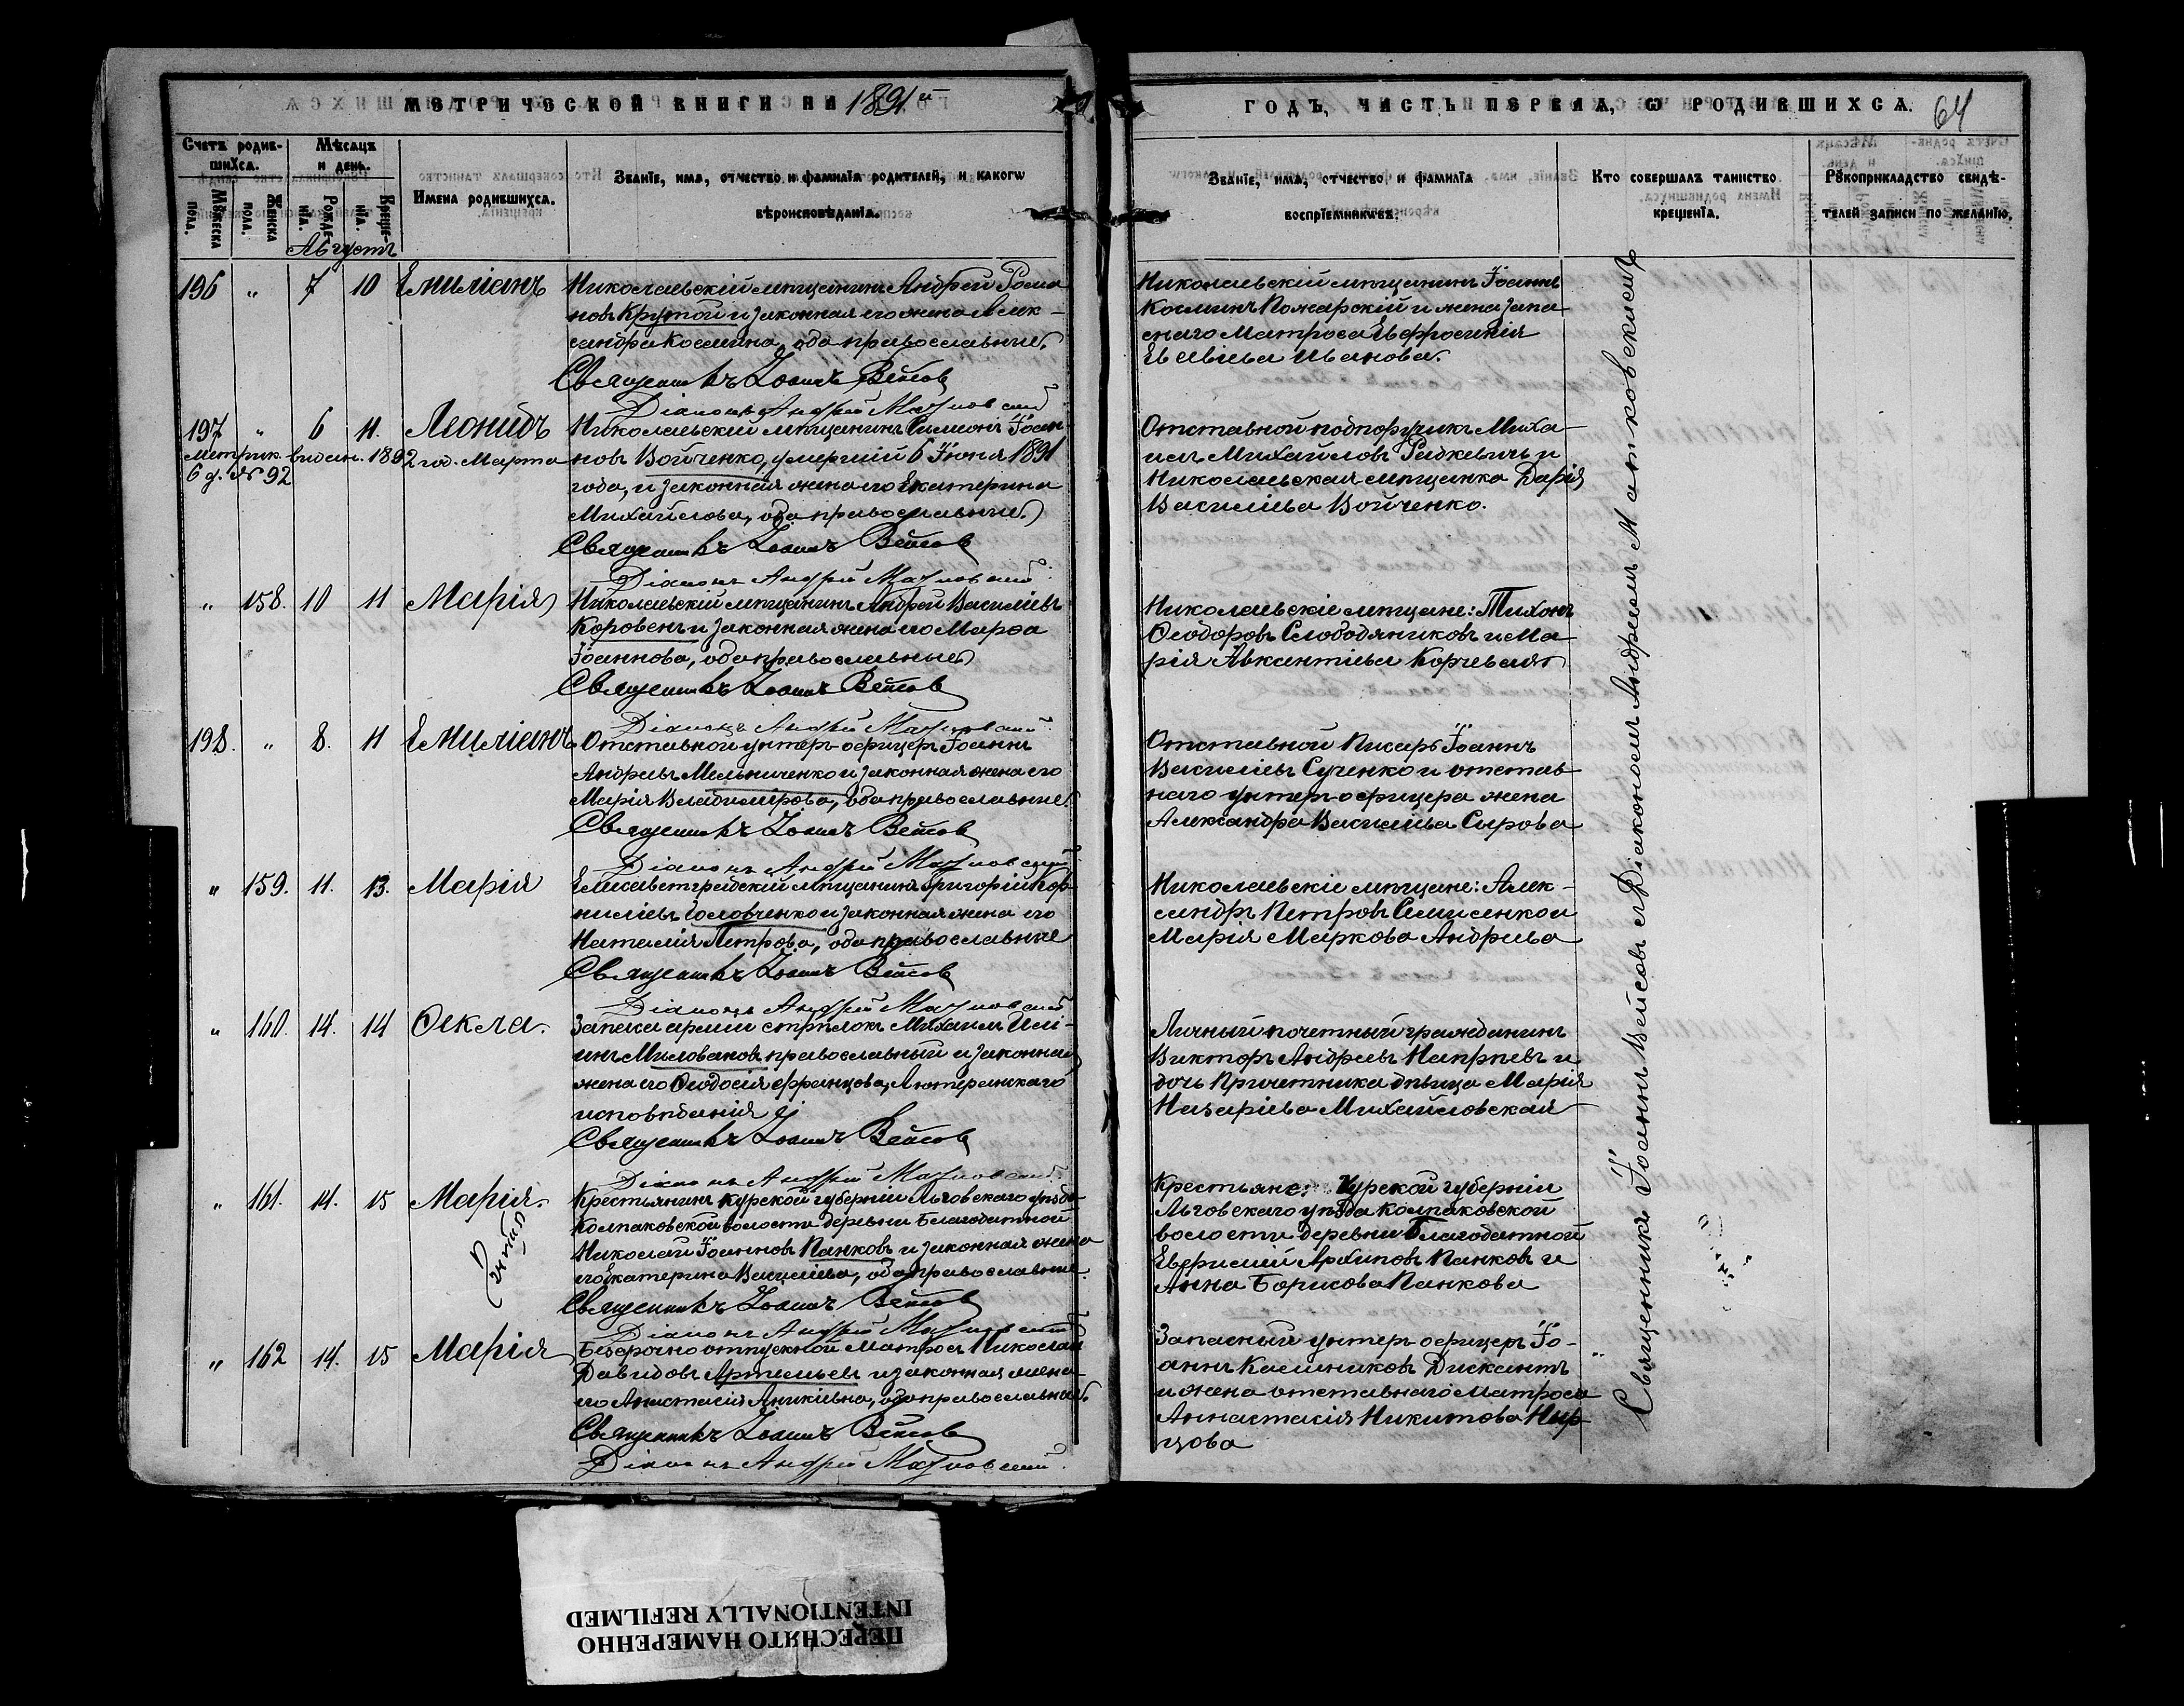 МЕТРИЧЕСКОЙ КНИГИ НА 1891й
ГОДЪ, ЧАСТЬ ПЕРВАЯ, Ѡ РОДИВШИХСѦ.
64
Счетъ родив-
шихсѧ.
Мѣсѧцъ
и день.
Мꙋжеска
пола.
Женска
пола.
Рожде-
нїѧ.
Креще-
нїѧ.
Имена родившихсѧ.
Званїе, имѧ, отчество и фамилїѧ родителей, и какогѡ
вѣроисповѣданїѧ.
Званїе, имѧ, отчество и фамилїѧ
воспрїемникѡвъ.
Кто совершалъ таинство
крещенїѧ.
Рꙋкоприкладство свидѣ-
телей записи по желанїю.
Августъ
196 " 7 10 Емиліанъ
Николаевскій мѣщанинъ Андрей Рома
новъ Крутой и законная его жена Алек-
сандра Космина, оба православные.
Священникъ Іоаннъ Вейсов
Діаконъ Андрей Матковский
Николаевскій мѣщанинъ Іоаннъ
Косминъ Пожарскій и жена запа
снаго матроса Евфросинія
Евсевіева Иванова.
197 " 6 11 Леонидъ
Метрик. видан. 1892 год. Марта
6 д. № 92
Николаевскій мѣщанинъ Симеонъ Іоан-
новъ Войченко, умершій 6 Іюня 1891
года, и законная жена его Екатерина
Михайлова, оба православные.
Священникъ Іоаннъ Вейсов
Діаконъ Андрей Матковский
Отставной подпоручикъ Миха-
илъ Михайловъ Радкевичъ и
Николаевская мѣщанка Дарія
Василіева Войченко.
" 158. 10 11 Марія
Николаевскій мѣщанинъ Андрей Василіевъ
Коровенъ и законная жена его Марѳа
Іоаннова, оба православные
Священникъ Іоаннъ Вейсов
Діаконъ Андрей Матковский
Николаевскіе мѣщане: Тихонъ
Ѳеодоровъ Слободяниковъ и Ма-
рія Авксентіева Корчевая
198. " 8. 11 Емиліанъ
Отставной унтер-офицеръ Іоаннъ
Андреевъ Мельниченко и законная жена его
Марія Владимірова, оба православные.
Священникъ Іоаннъ Вейсов
Діаконъ Андрей Матковский
Отставной Писарь Іоаннъ
Василіевъ Сученко и отстав-
наго унтер-офицера жена
Александра Василіева Сырова
" 159. 11. 13. Марія
Елисаветградскій мѣщанинъ Григорій Кор-
ниліевъ Головченко и законная жена его
Наталія Петрова, оба православные
Священникъ Іоаннъ Вейсов
Діаконъ Андрей Матковский
Николаевскіе мѣщане: Алек-
сандръ Петровъ Самисенко и
Марія Маркова Андреева
" 160. 14. 14 Ѳекла.
Запаса арміи стрѣлокъ Михаилъ Илі-
инъ Миловановъ православный и законная
жена его Ѳеодосія Францова, Лютеранскаго
исповѣданія
Священникъ Іоаннъ Вейсов
Діаконъ Андрей Матковский
Личный почетный гражданинъ
Викторъ Андреевъ Напрѣевъ и
дочь Причетника дѣвица Марія
Назаріева Михайловская
" 161. 14. 15 Марія.
Крестьянинъ Курской губерніи Льговскаго уѣзда
Колпаковской волости деревни Благодатной
Николай Іоанновъ Панковъ и законная жена
его Екатерина Василіева, оба православные.
Священникъ Іоаннъ Вейсов
Діаконъ Андрей Матковский
Крестьяне: Курской губерніи
Льговскаго уѣзда Колпаковской
волости деревни Благодатной
Евфимій Архиповъ Панковъ и
Анна Борисова Панкова
" 162 14. 15 Марія
Безсрочно отпускной матросъ Николай
Давидовъ Артемьевъ и законная жена
его Анастасія Аникіевна, оба православные.
Священникъ Іоаннъ Вейсов
Діаконъ Андрей Матковский
Запасный унтер-офицеръ Іо-
аннъ Калинниковъ Дискантъ
и жена отставнаго матроса
Аннастасія Никитова Нир-
цова
Священникъ Іоаннъ Вейсовъ съ Діакономъ Андреемъ Матковскимъ
ПЕРЕСНЯТО НАМЕРЕННО
INTENTIONALLY REFILMED